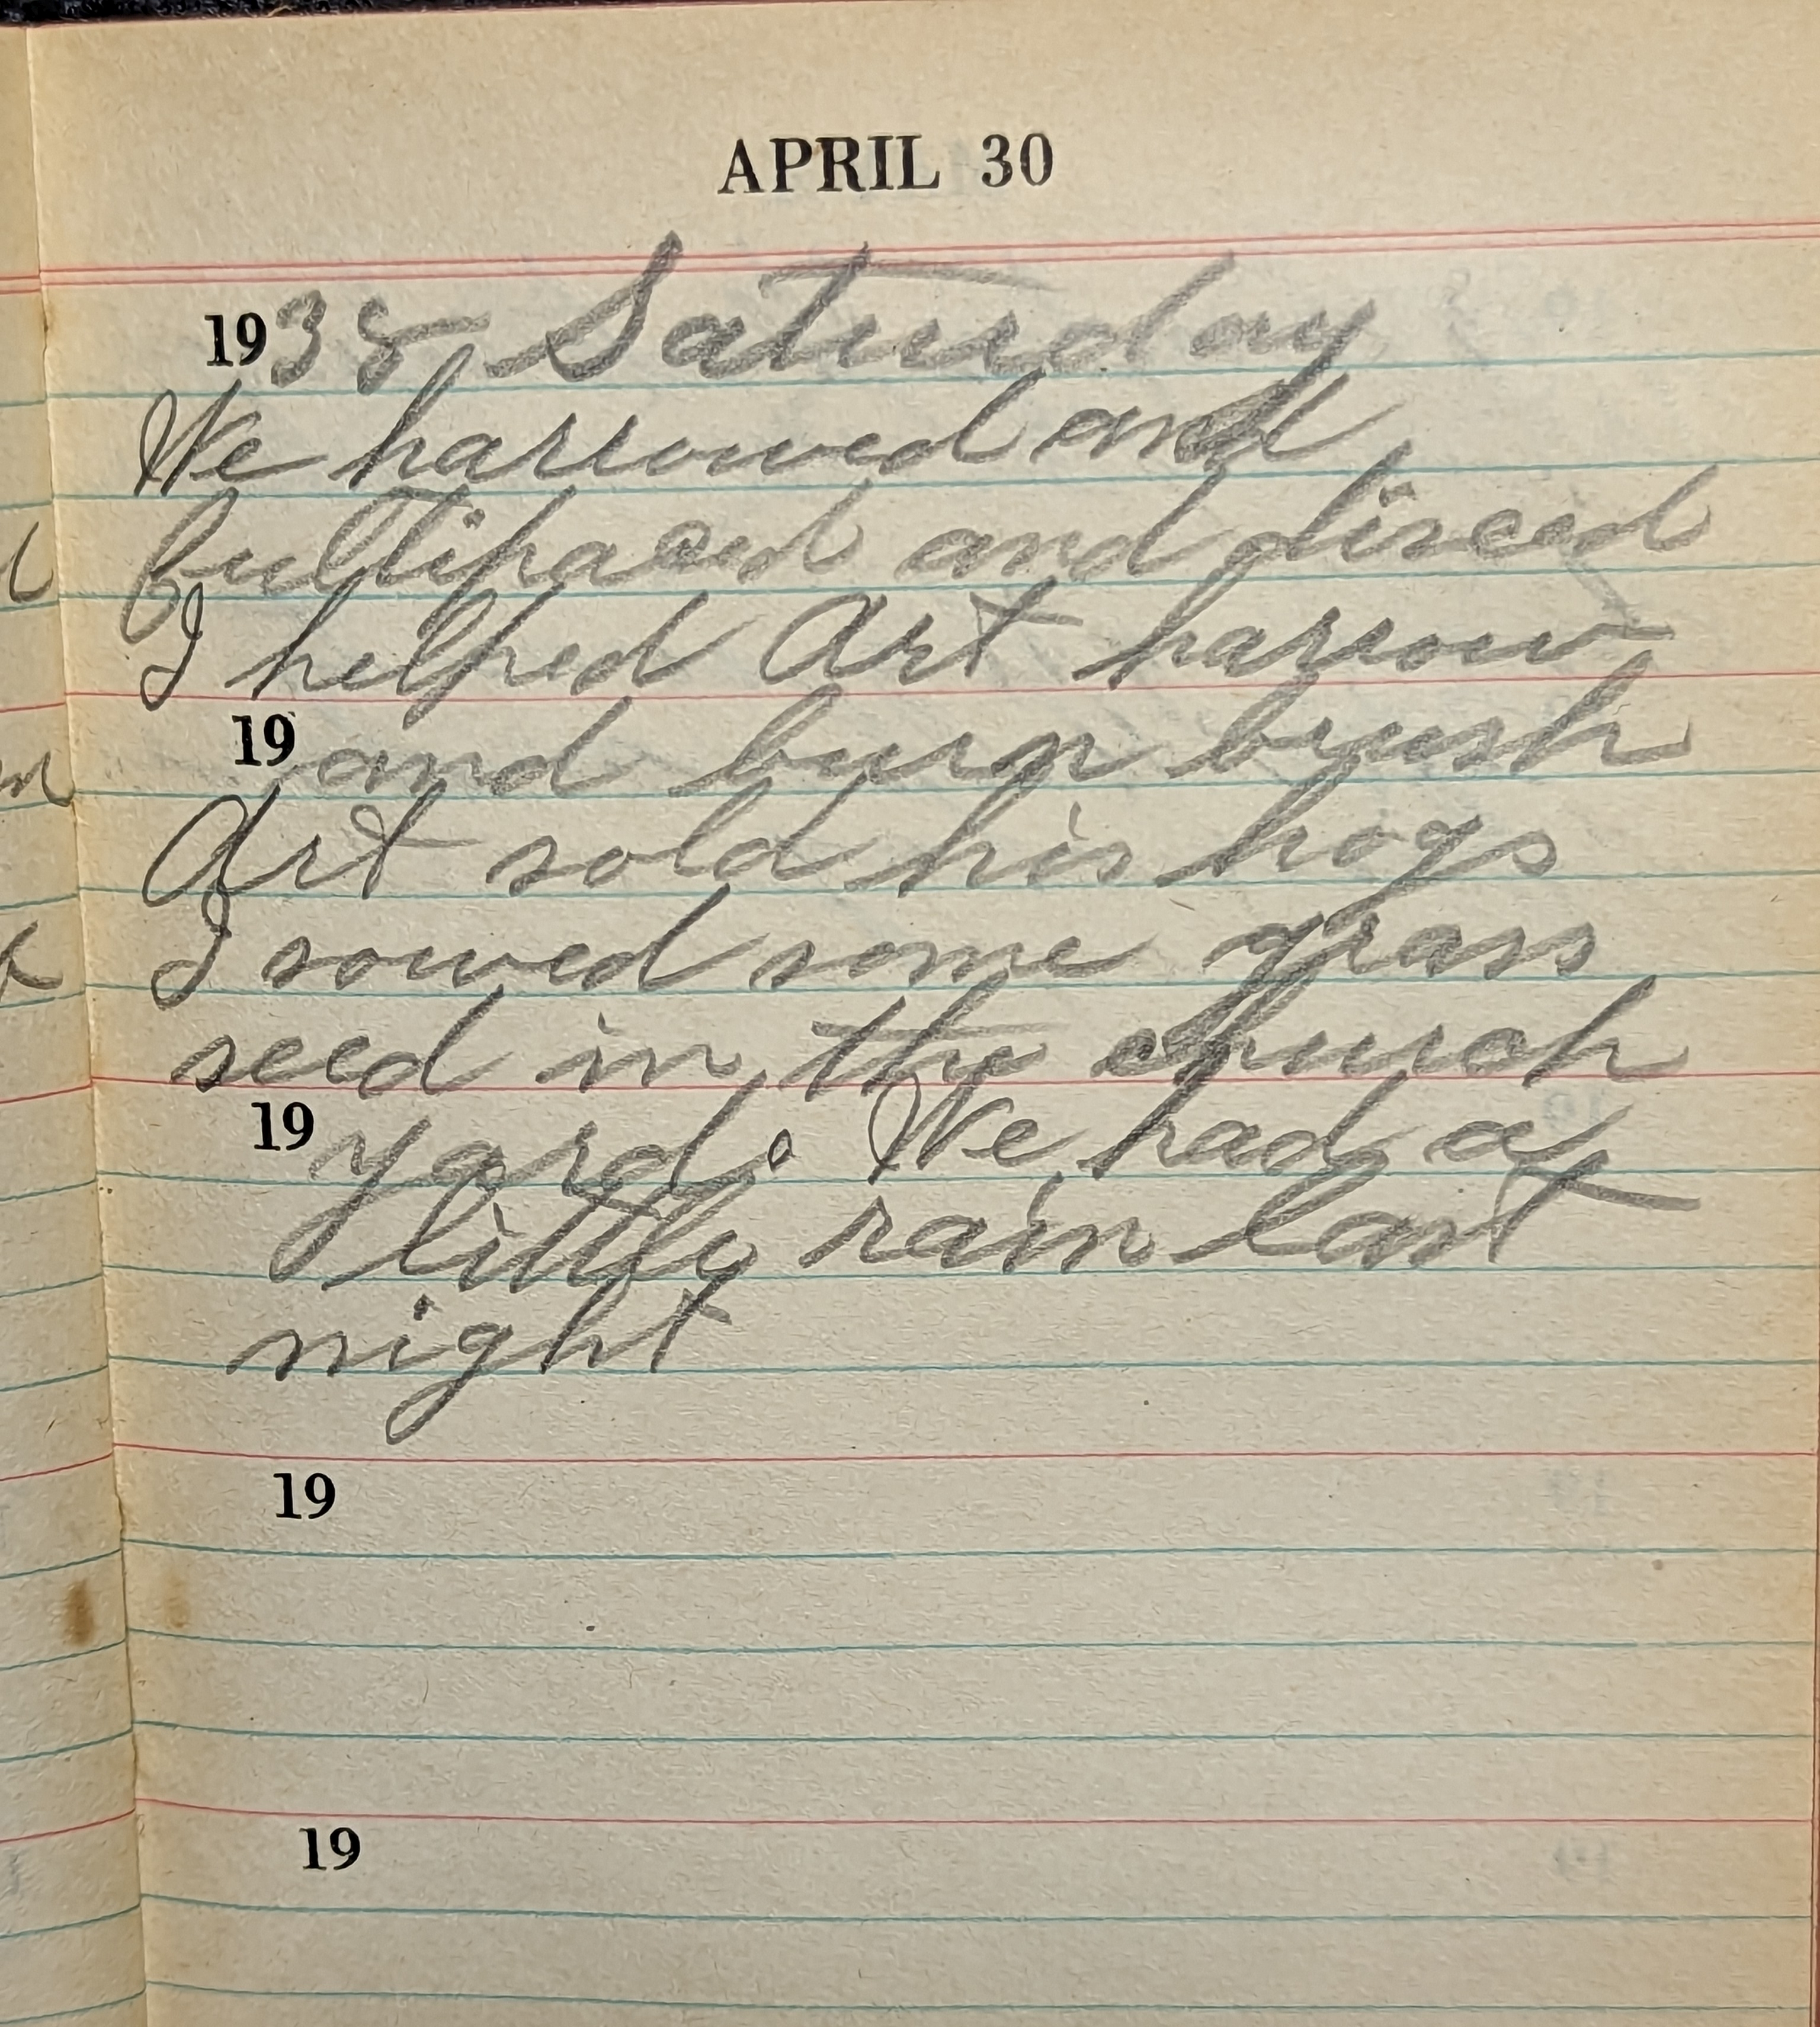 APRIL 30
1938 Saturday
We harrowed and
Cultipaced and disced
I helped Art harrow
19 and burn brush
Art sold his hogs
I sowed some grass
seed in the church
19 yard. We had a
little rain last
night
19
19